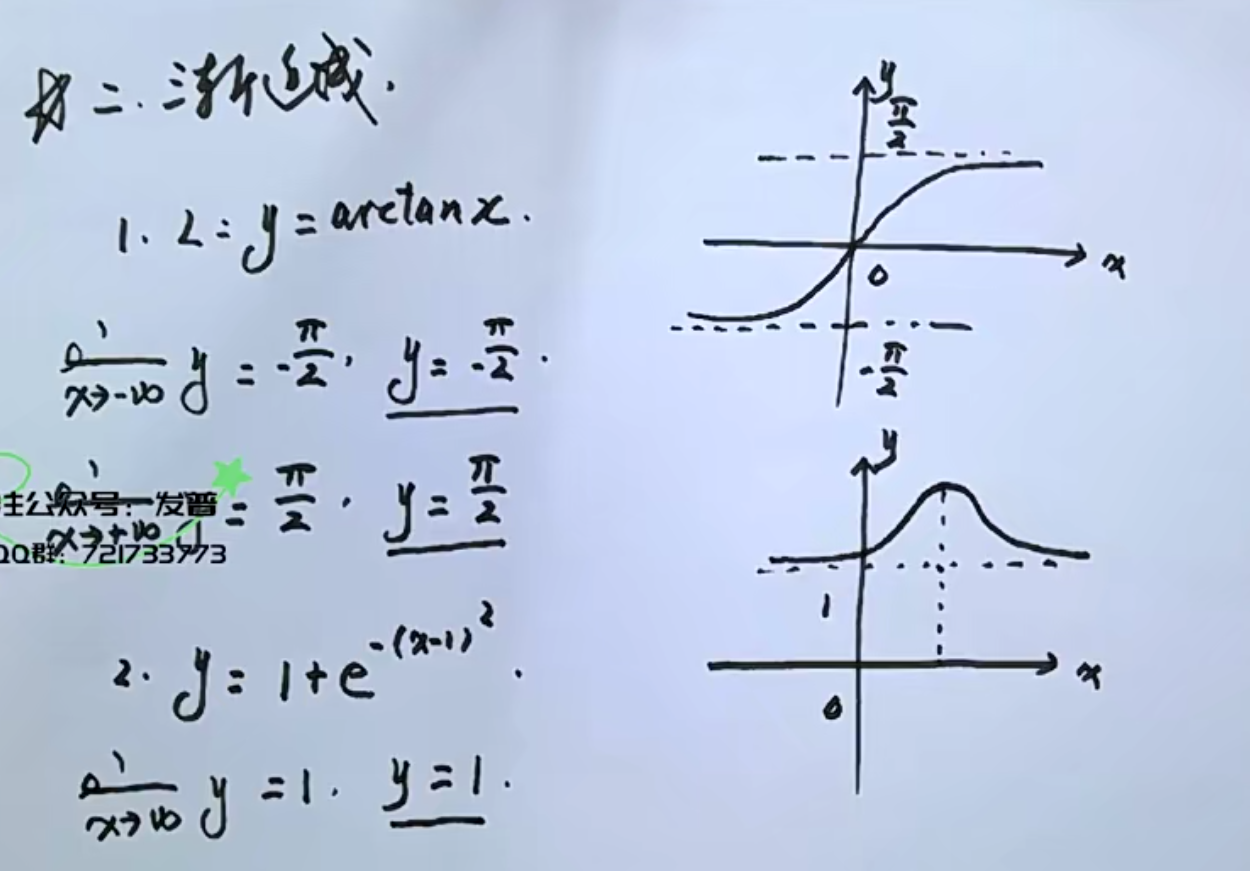 二. 渐近线.
1. L: y = arctanx.
lim x→-∞ y = -π/2, y = -π/2.
lim x→+∞ y = π/2. y = π/2
注公众号: 一发普
QQ群: 721733773
2. y = 1+e^-(x-1)^2.
lim x→∞ y = 1. y = 1.
y
π/2
0
x
-π/2
y
1
0
x